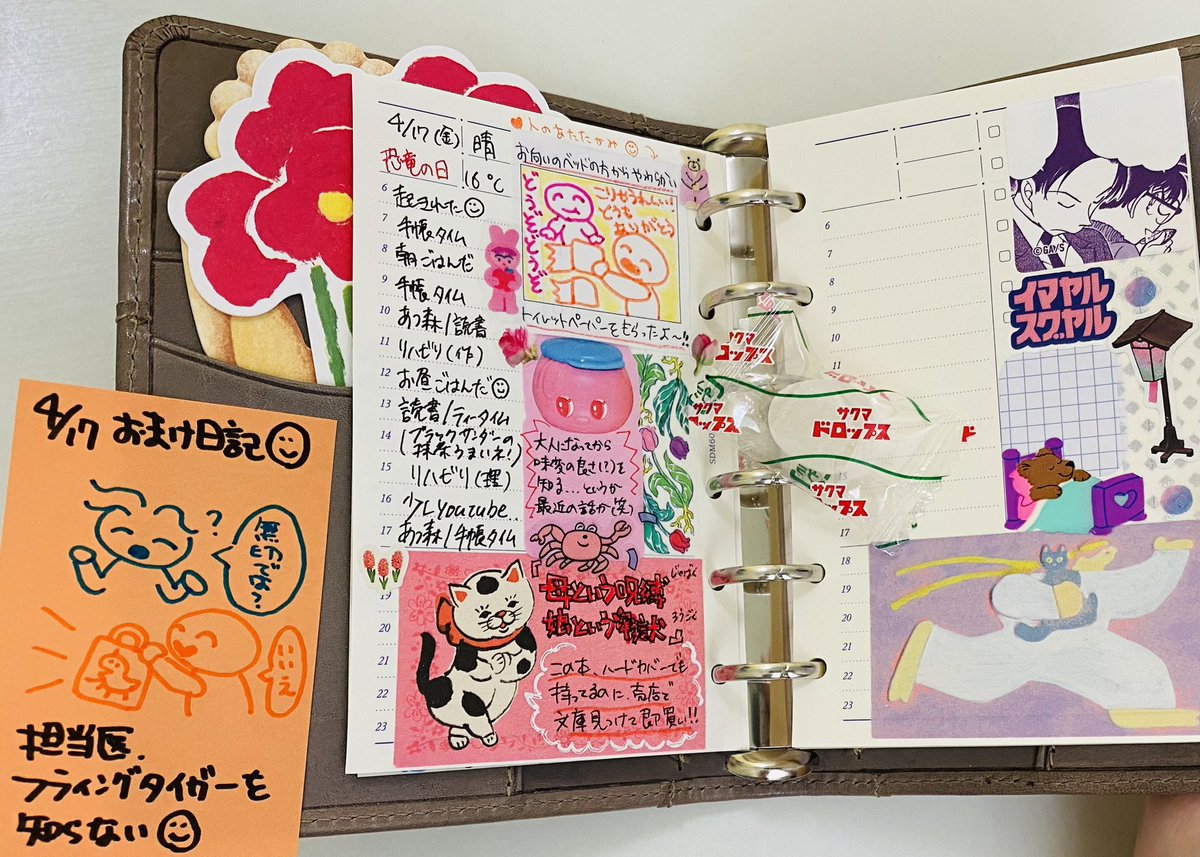 4/17(金) 晴
恐竜の日 16℃
6 起きれた
7 手帳タイム
8 朝ごはんだ
9 手帳タイム
10 あつ森/読書
11 リハビリ(作)
12 お昼ごはんだ
13 読書/ティータイム
14 (ブラックサンダーの
抹茶うまいネ!)
15 リハビリ(理)
16 少しyoutube..
17 あつ森/手帳タイム
19
20
21
22
23
人のあたたかみ
お向いのベッドの方からやわらかい
どうぞどうぞ
どうも
ありがとう
トイレットペーパーをもらったよ〜!!
大人になってから
味変の良さ(?)を
知る…というか
最近の話か(笑)
母という呪縛
じゅばく
娘という牢獄
ろうごく
この本、ハードカバーでも
持ってるのに、売店で
文庫見つけて即買い!!
サクマ
ロップス
サクマ
ロップス
サクマ
ドロップス
サクマ
ドロップス
ド
SDM60
6
7
8
9
10
11
17
18
19
20
21
22
23
©GA/S
イマヤル
スグヤル
4/17 おまけ日記
?
無印では?
いいえ
担当医、
フライングタイガーを
知らない